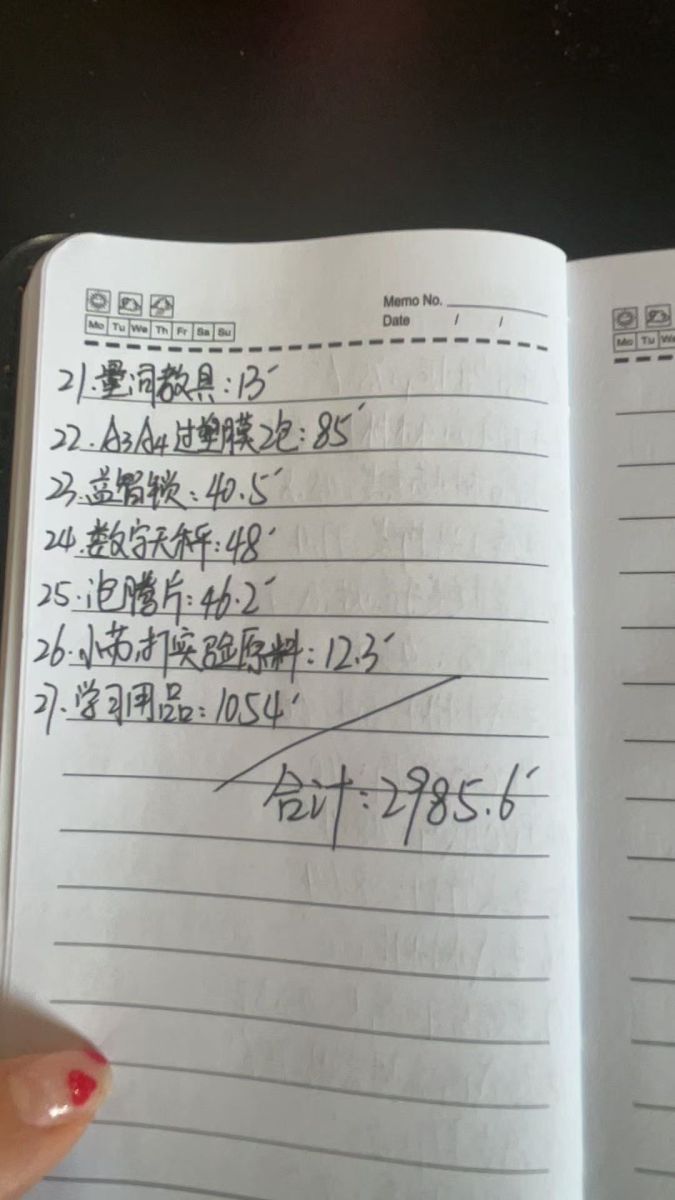 Memo No.
Mo Tu We Th Fr Sa Su
Date / /
21.量词教具:13
22.A3A4过塑膜2包:85
23.益智锁:40.5
24.数字天秤:48
25.泡腾片:46.2
26.小苏打实验原料:12.3
27.学习用品:1054
合计:2985.6
Mo Tu We